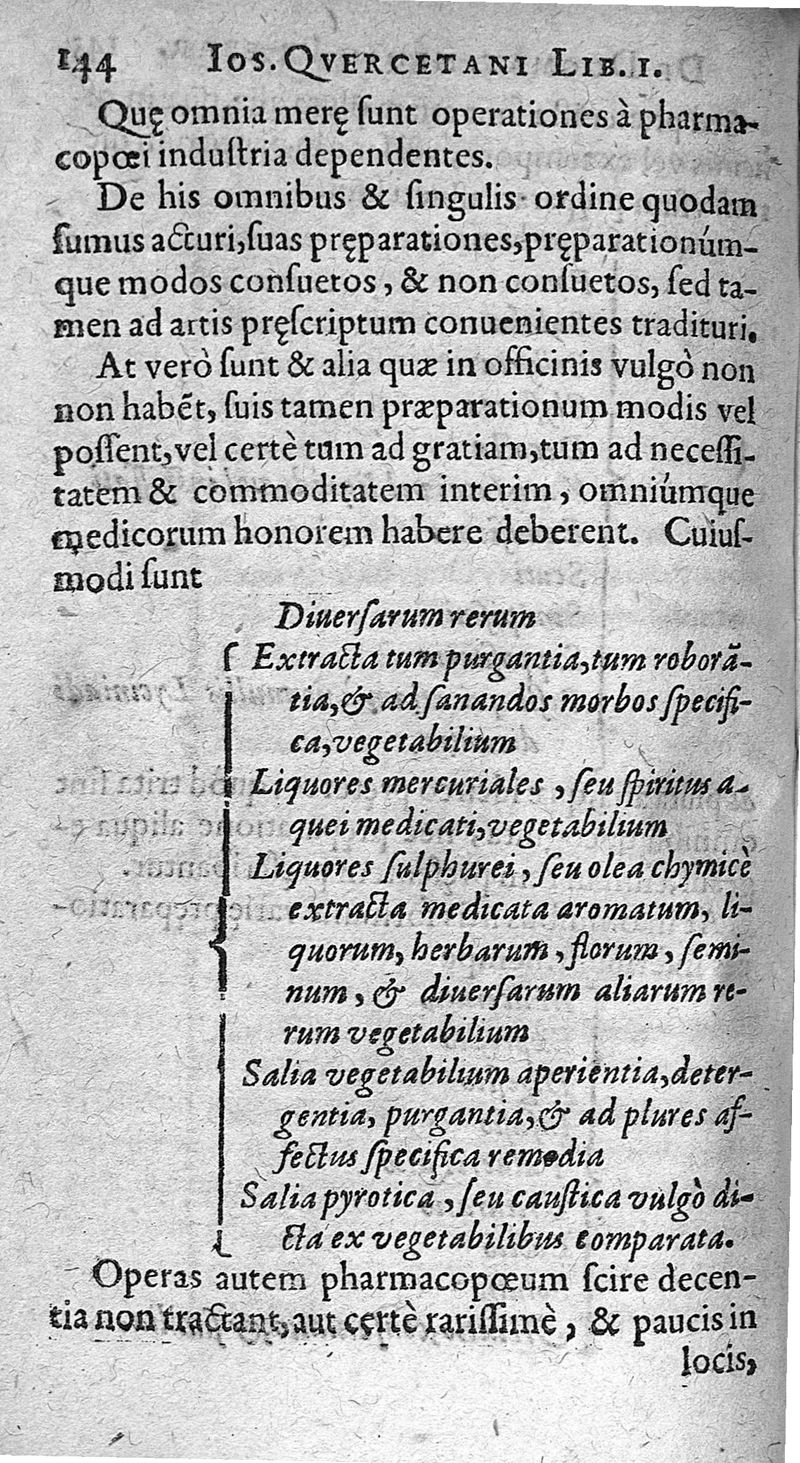 144 Ios. Qvercetani Lib. I.
Quę omnia merę ſunt operationes à pharma-
copœi induſtria dependentes.
De his omnibus & ſingulis ordine quodam
ſumus acturi,ſuas pręparationes,pręparationúm-
que modos conſuetos, & non conſuetos, ſed ta-
men ad artis pręſcriptum conuenientes tradituri.
At verò ſunt & alia quæ in officinis vulgò non
non habẽt, ſuis tamen præparationum modis vel
poſſent,vel certè tum ad gratiam,tum ad neceſſi-
tatem & commoditatem interim, omniúmque
medicorum honorem habere deberent. Cuiuſ-
modi ſunt
Diuerſarum rerum
Extracta tum purgantia,tum roborã-
tia,& ad ſanandos morbos ſpecifi-
ca,vegetabilium
Liquores mercuriales, ſeu ſpiritus a-
quei medicati,vegetabilium
Liquores ſulphurei, ſeu olea chymicè
extracta medicata aromatum, li-
quorum, herbarum, florum, ſemi-
num, & diuerſarum aliarum re-
rum vegetabilium
Salia vegetabilium aperientia,deter-
gentia, purgantia,& ad plures af-
fectus ſpecifica remedia
Salia pyrotica, ſeu cauſtica vulgò di-
cta ex vegetabilibus comparata.
Operas autem pharmacopœum ſcire decen-
tia non tractant,aut certè rariſſimè, & paucis in
locis,